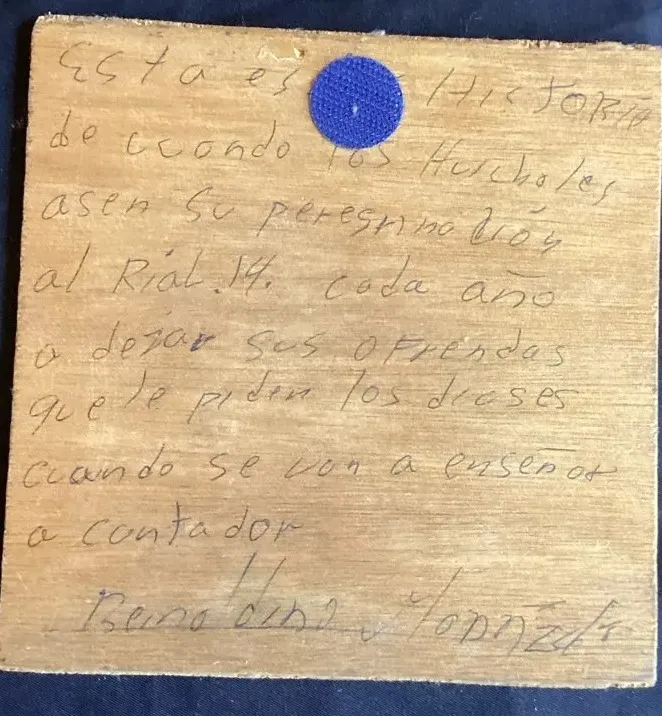 Esta es HISTORIA
de cuando los Huicholes
asen su peregrinación
al Rial.14. cada año
a dejar sus ofrendas
que le piden los dioses
cuando se van a enseñar
a cantador